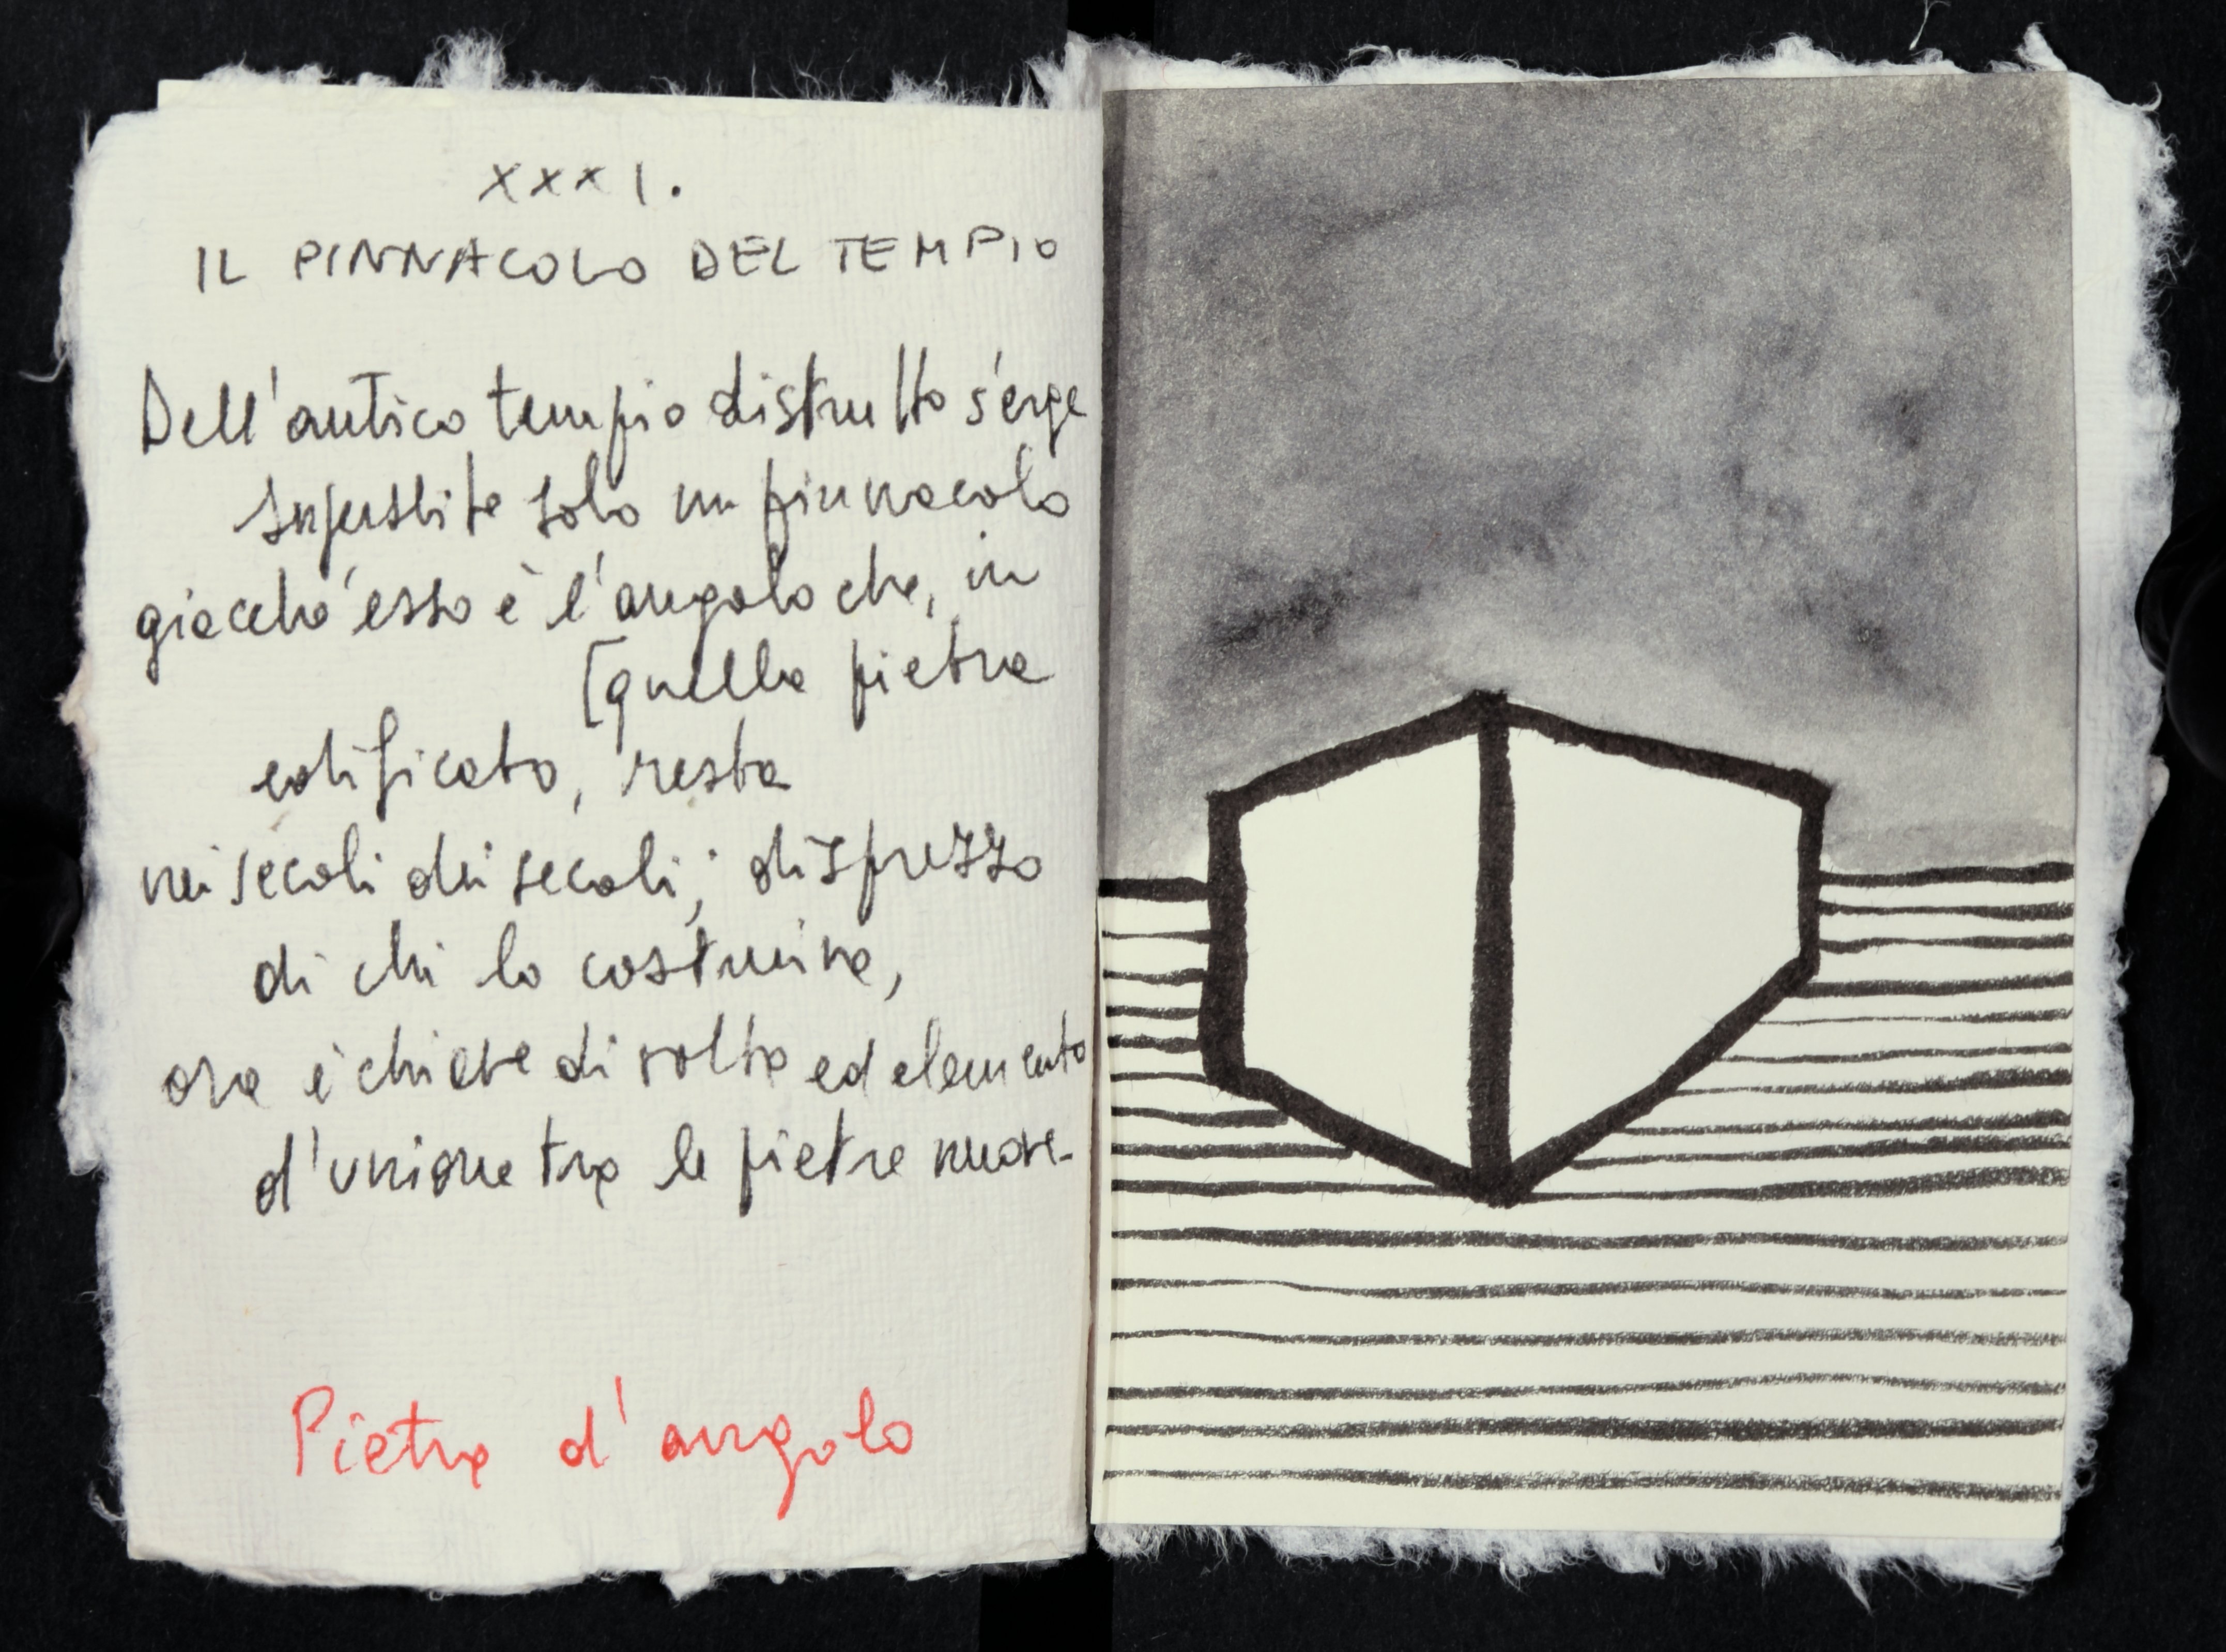 XXXI.
IL PINNACOLO DEL TEMPIO
Dell'antico tempio distrutto s'erge
superstite solo un pinnacolo
giacché esso è l'angolo che, in
[quella pietra
edificato, resta
nei secoli dei secoli; disprezzo
di chi lo costruiva,
ora è chiave di volta ed elemento
d'unione tra le pietre nuove.
Pietra d'angolo